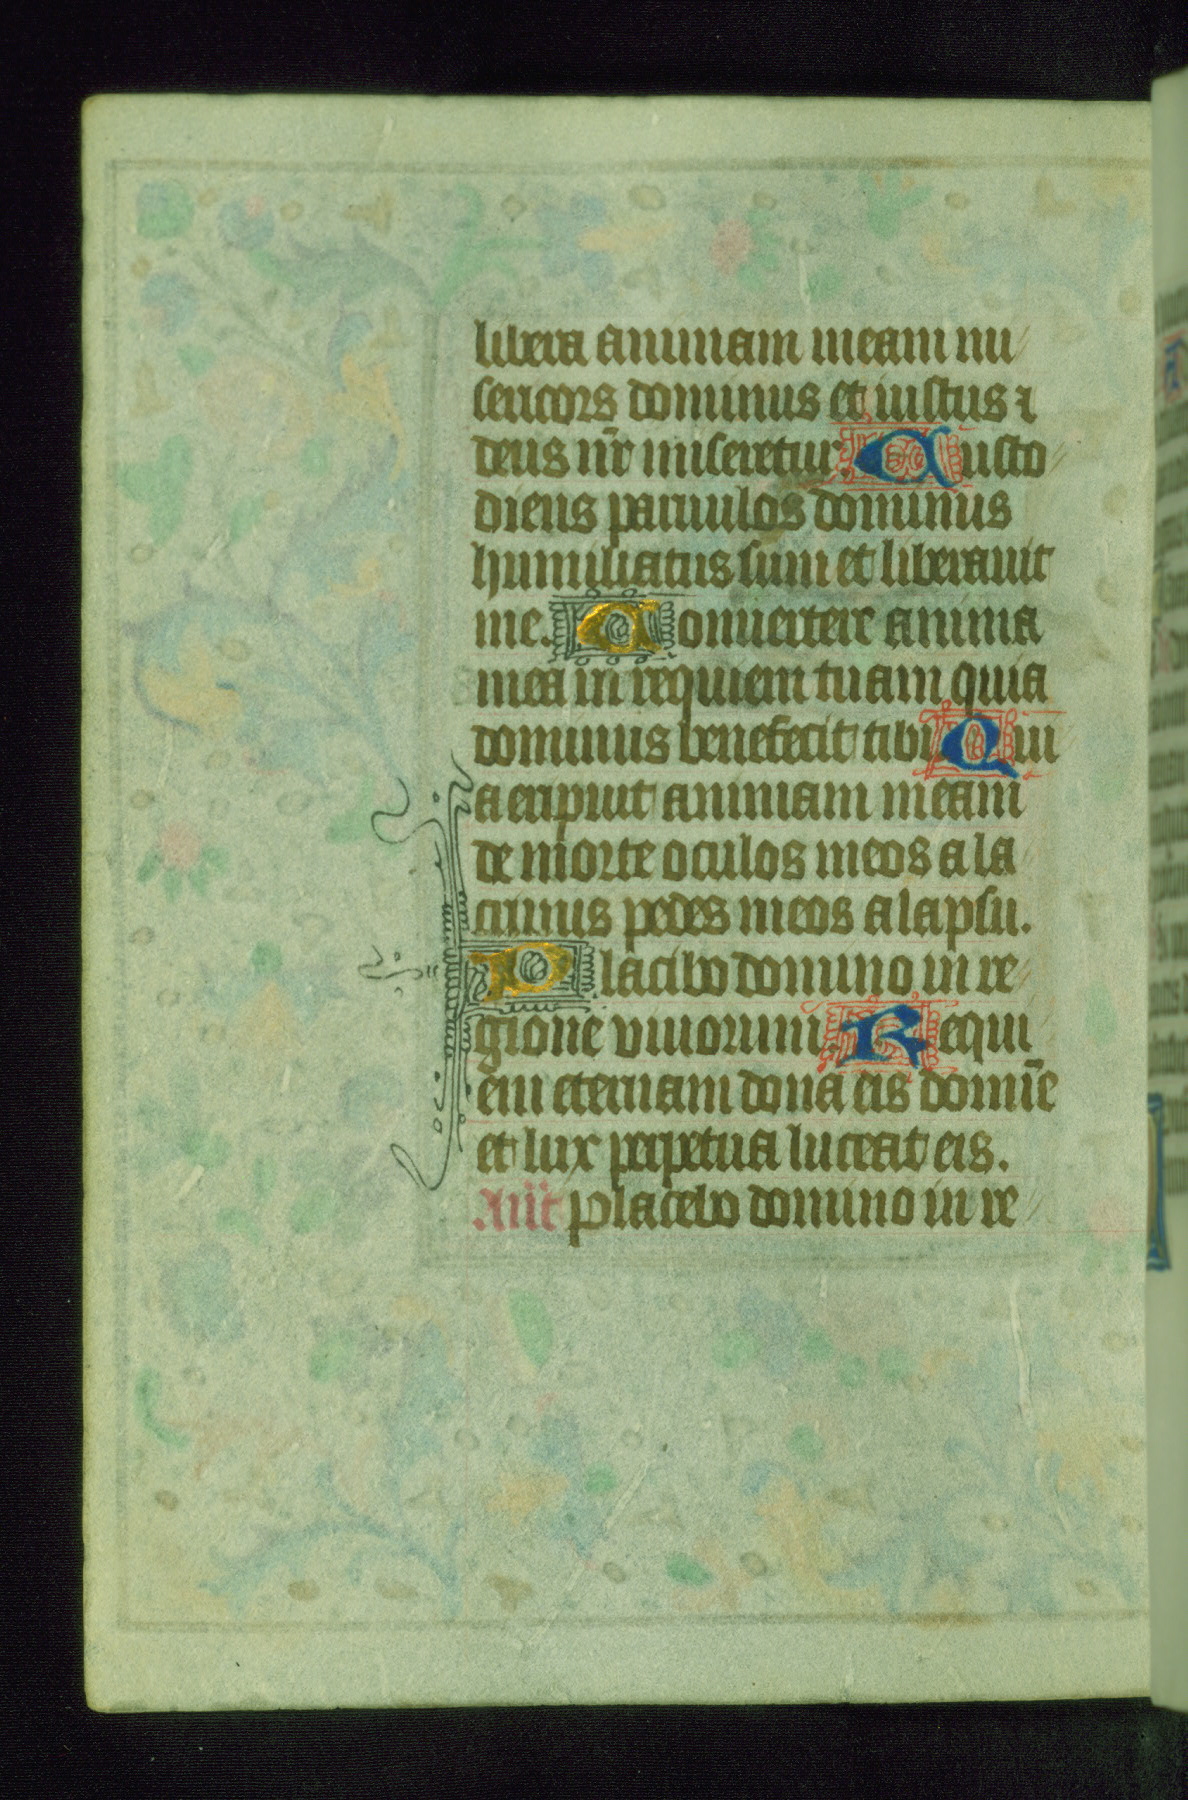 libera animam meam mi
sericors dominus et iustus ⁊
deus nr̄ miseretur. Custo
diens paruulos dominus
humiliatus sum et liberauit
me. Conuertere anima
mea in requiem tuam quia
dominus benefecit tibi Qui
a eripuit animam meam
de morte oculos meos a la
crimis pedes meos a lapsu.
Placebo domino in re
gione viuorum. Requi
em eternam dona eis domīe
et lux perpetua luceat eis.
Placebo domino in re